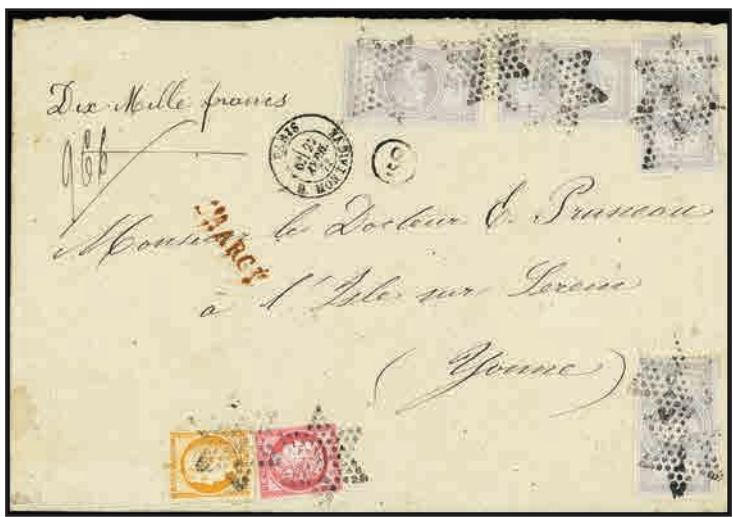 Dix Mille francs
PARIS
R. MONTAIGNE
CHARGÉ
Monsieur le Docteur E. Pruneau
à l'Isle sur Serein
(Yonne)